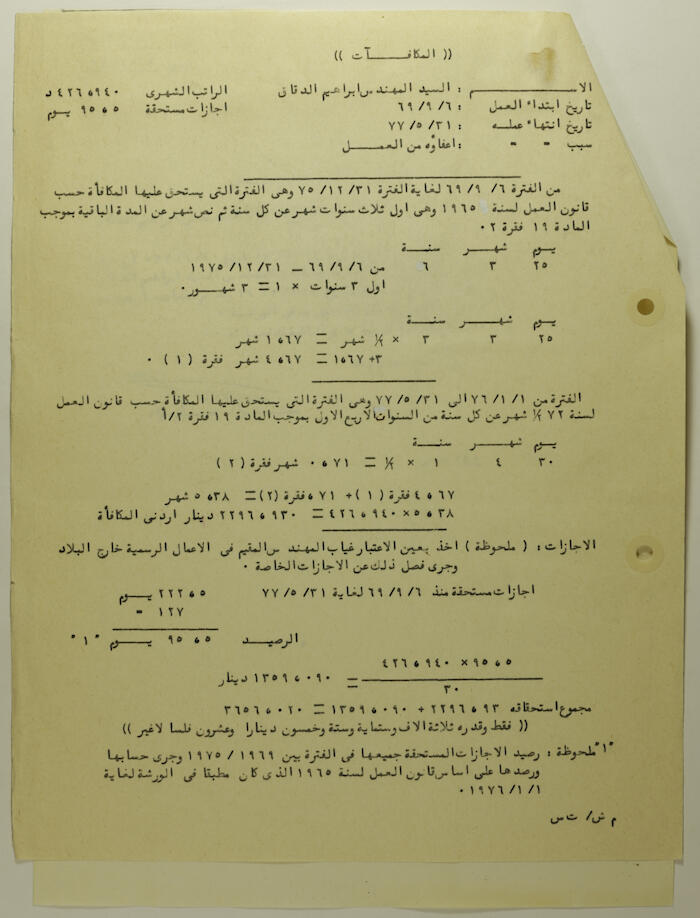 (( المكافـــــــآت ))
الاســـــــــــــم : السيد المهندس ابراهيم الدقاق    الراتب الشهرى ٤٢٦٫٩٤٠ د
تاريخ ابتداء العمل : ٦/ ٩/ ٦٩    اجازات مستحقة ٩٥٫٥ يــوم
تاريخ انتهاء عملـه : ٣١/ ٥/ ٧٧
سبب " " : اعفاؤه من العمــــل
من الفترة ٦/ ٩/ ٦٩ لغاية الفترة ٣١/ ١٢/ ٧٥ وهى الفترة التى يستحق عليها المكافأة حسب
قانون العمل لسنة ١٩٦٥ وهى اول ثلاث سنوات شهر عن كل سنة ثم نصف شهر عن المدة الباقية بموجب
المادة ١٩ فقرة ٢٠
يوم شهـــر سنــة
٢٥ ٣ ٦ من ٦/ ٩/ ٦٩ ـ ٣١/ ١٢/ ١٩٧٥
اول ٣ سنوات × ١ = ٣ شهــور٠
يوم شهـــر سنــة
٢٥ ٣ ٣ × ١/٢ شهر = ١٫٦٧ شهر
٣+ ١٫٦٧ = ٤٫٦٧ شهر فقرة ( ١ ) ٠
الفترة من ١/ ١/ ٧٦ الى ٣١/ ٥/ ٧٧ وهى الفترة التى يستحق عليها المكافأة حسب قانون العمل
لسنة ٧٢ ١/٢ شهر عن كل سنة من السنوات الاربع الاول بموجب المادة ١٩ فقرة ٢/أ
يوم شهـــر سنــة
٣٠ ٤ ١ × ١/٢ = ٠٫٧١ شهر فقرة ( ٢ )
٤٫٦٧ فقرة ( ١ )+ ٠٫٧١ فقرة (٢)= ٥٫٣٨ شهر
٥٫٣٨ ×٤٢٦٫٩٤٠ = ٢٢٩٦٫٩٣٠ دينار اردنى المكافأة
الاجازات : ( ملحوظة ) اخذ بعين الاعتبار غياب المهندس المقيم فى الاعمال الرسمية خارج البلاد
وجرى فصل ذلك عن الاجازات الخاصة ٠
اجازات مستحقة منذ ٦/ ٩/ ٦٩ لغاية ٣١/ ٥/ ٧٧    ٢٢٢٫٥ يــوم
١٢٧ "
الرصيــد    ٩٥٫٥ يـــوم "١"
٩٥٫٥ ×٤٢٦٫٩٤٠
= ١٣٥٩٫٠٩٠ دينار
٣٠
مجموع استحقاقه ٢٢٩٦٫٩٣ + ١٣٥٩٫٠٩٠ = ٣٦٥٦٫٠٢٠
(( فقط وقدره ثلاثة الاف وستماية وستة وخمسون دينارا وعشرون فلسا لاغير ))
"١" ملحوظة : رصيد الاجازات المستحقة جميعها فى الفترة بين ١٩٦٩/ ١٩٧٥ وجرى حسابها
ورصدها على اساس قانون العمل لسنة ١٩٦٥ الذى كان مطبقا فى الورشة لغاية
١/ ١/ ١٩٧٦٠
م ش/ ت س